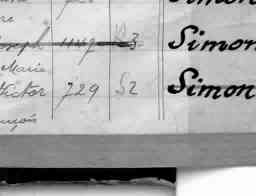 Simon
Joseph 1149 23 Simon
Marie
Victor 729 S2 Simon